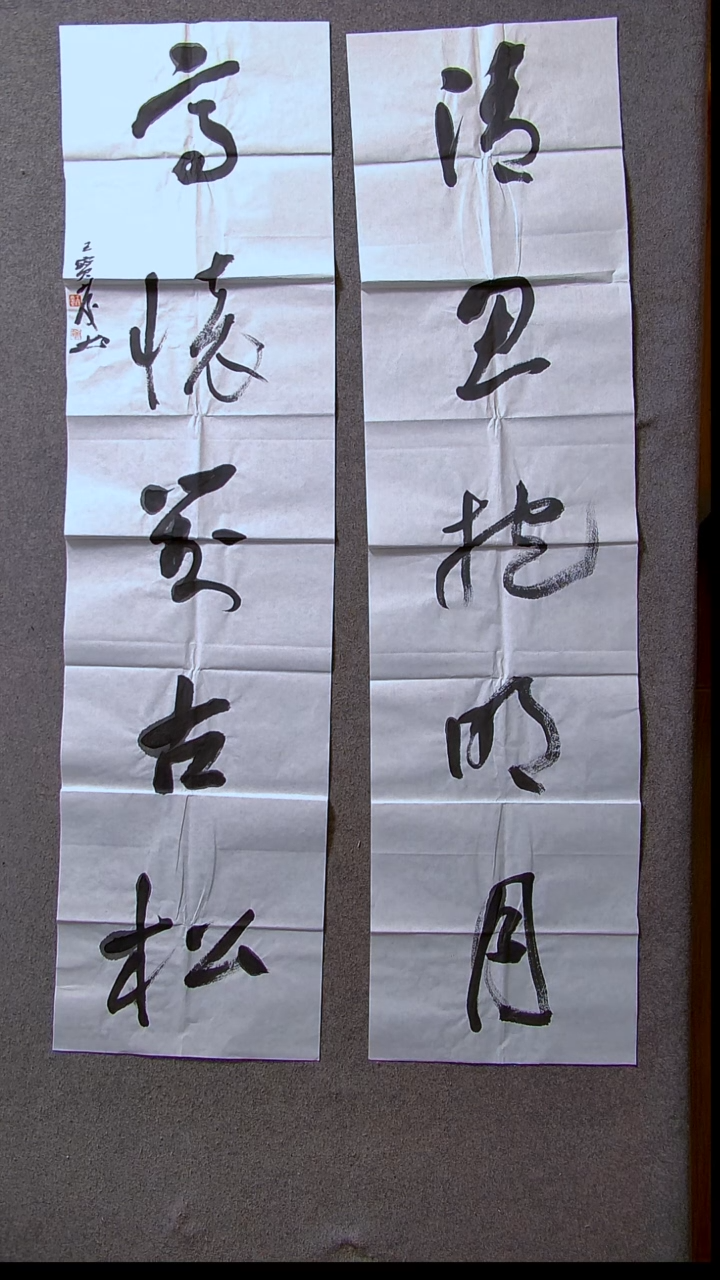 清思抱明月
高懷對古松